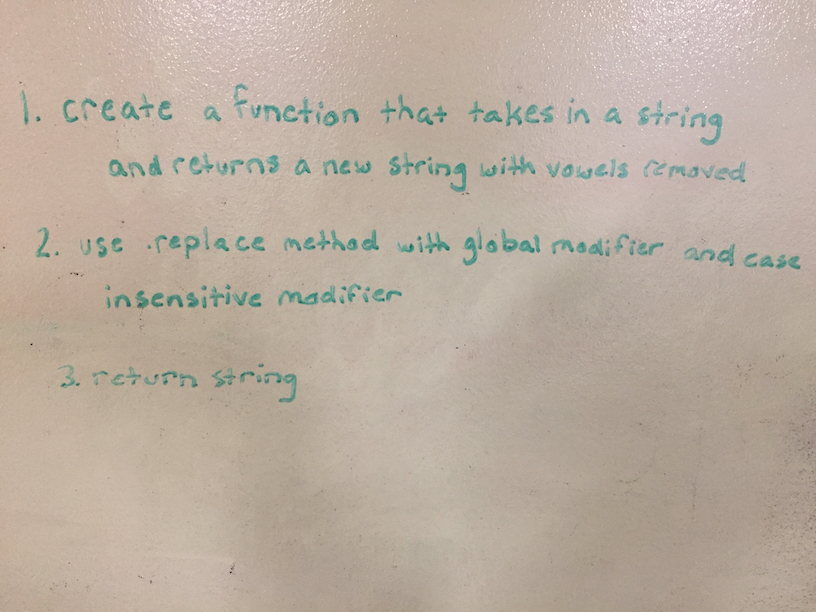 1. create a function that takes in a string
and returns a new string with vowels removed
2. use .replace method with global modifier and case
insensitive modifier
3. return string